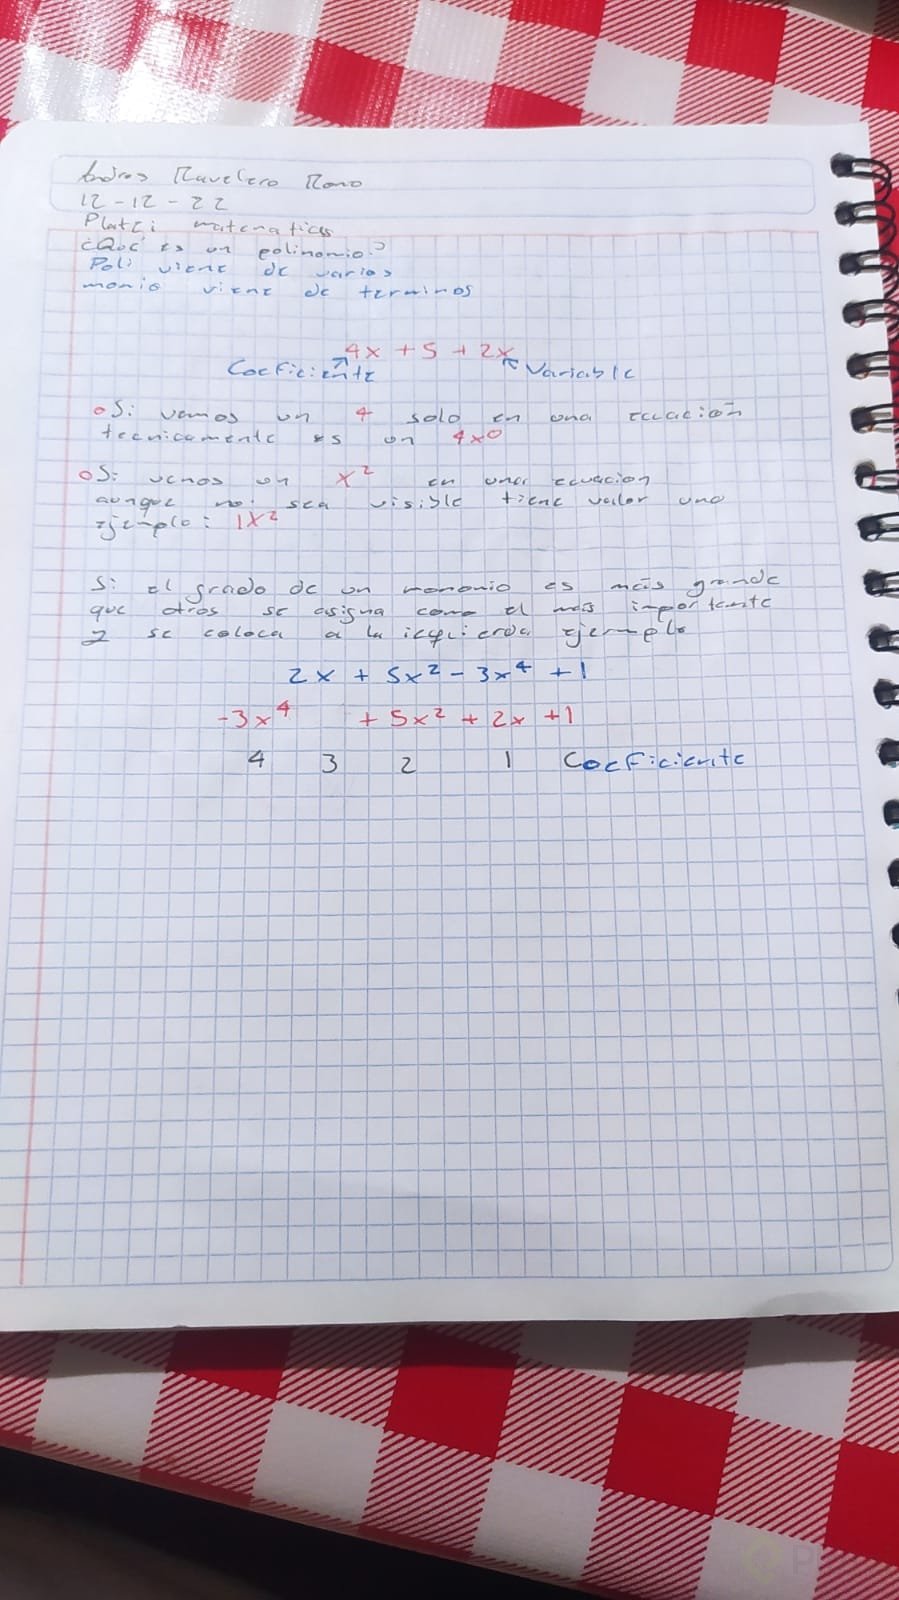 Andres Ravelero Romo
12-12-22
Platzi matematicas
¿Que es un polinomio?
Poli viene de varios
monio viene de terminos
4x + 5 + 2x
Coeficiente Variable
Si vemos un 4 solo en una ecuación
tecnicamente es un 4x⁰
Si vemos un x² en una ecuacion
aunque no sea visible tiene valor uno
ejemplo: 1x²
Si el grado de un monomio es más grande
que otros se asigna como el más importante
y se coloca a la izquierda ejemplo
2x + 5x² - 3x⁴ + 1
-3x⁴ + 5x² + 2x + 1
4 3 2 1 Coeficiente